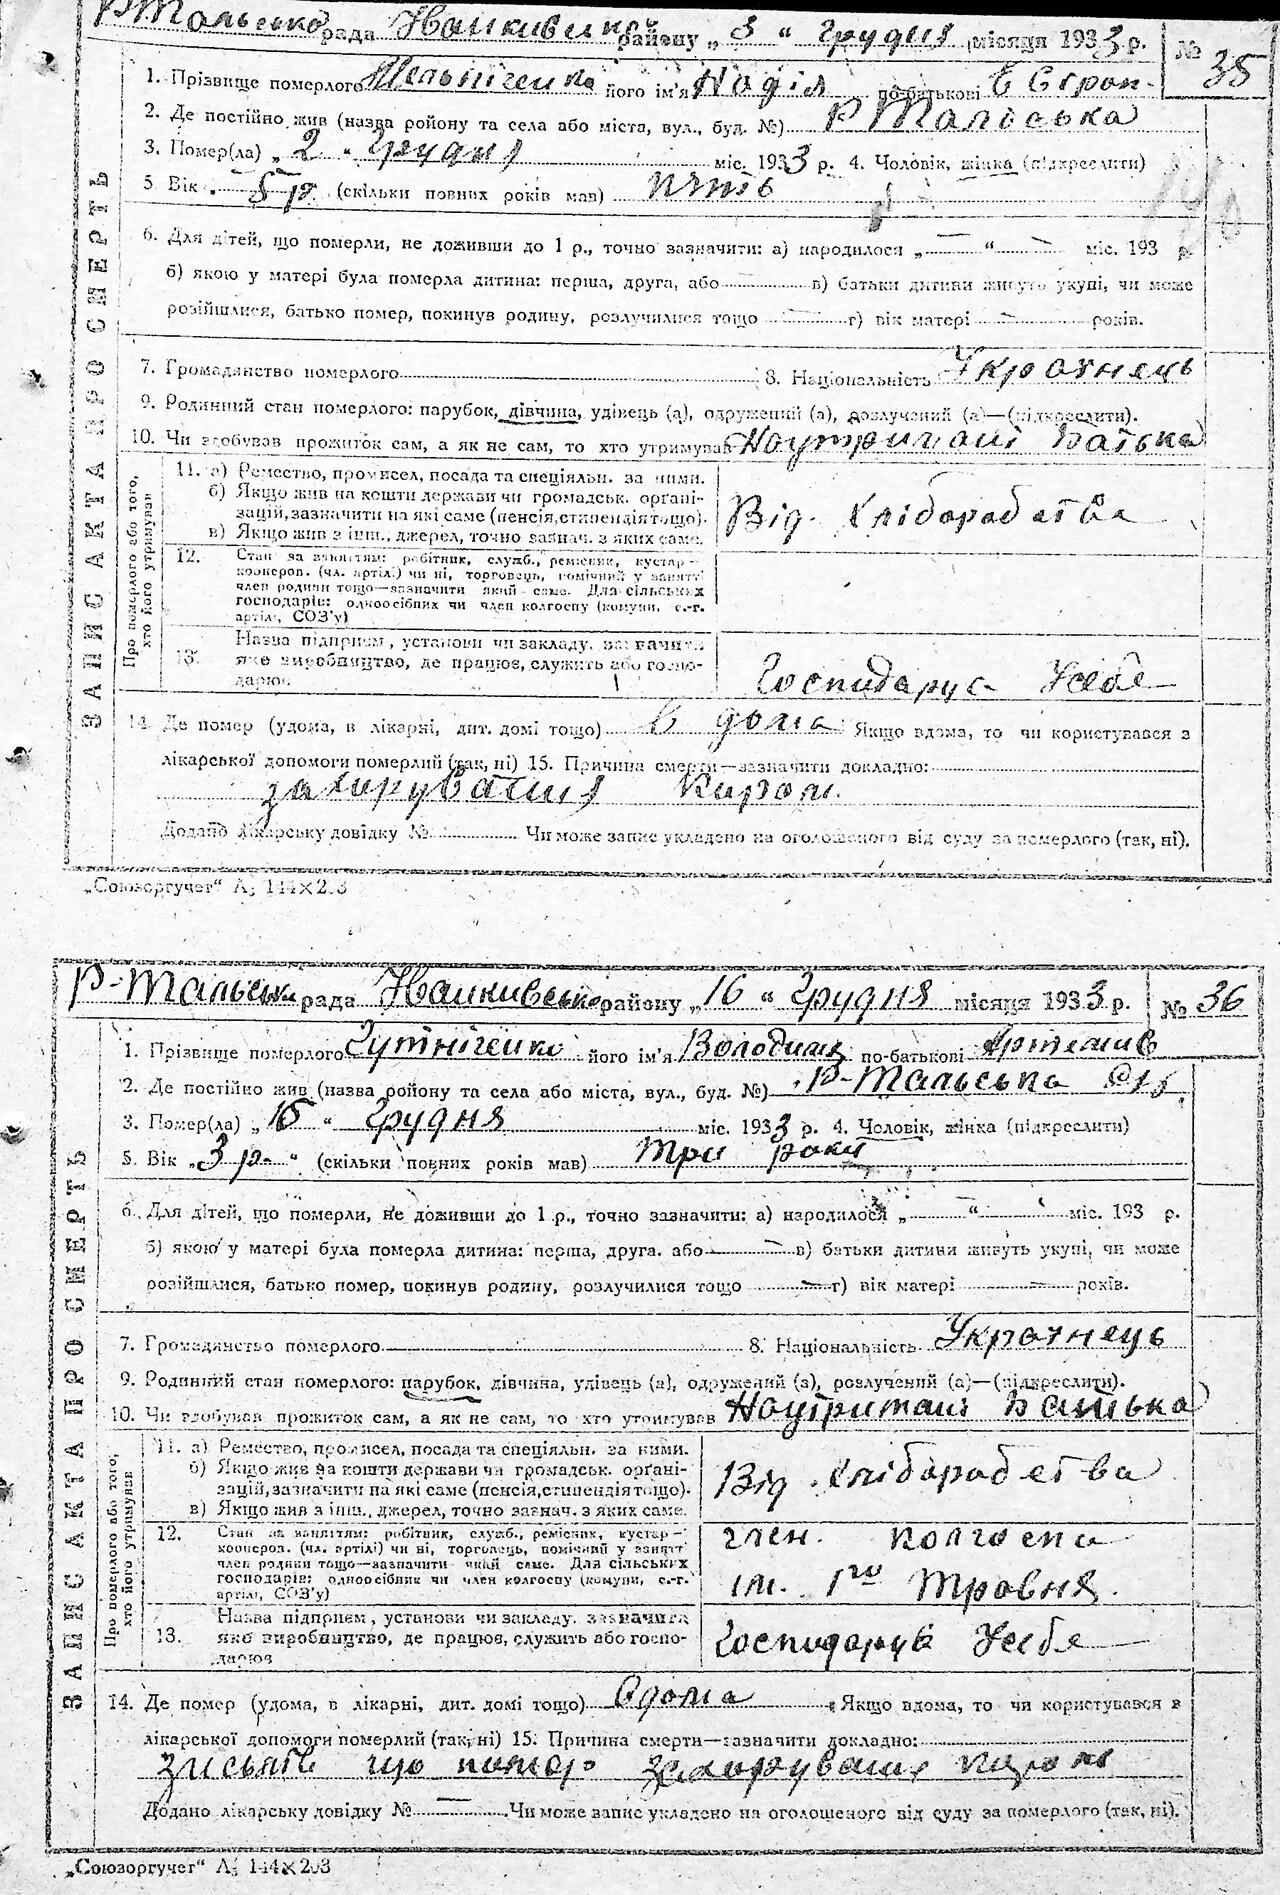 Р Тальська рада району „3“ грудня місяця 1933 р. № 35
1. Прізвище померлого його ім'я Надія по-батькові
2. Де постійно жив (назва ройону та села або міста, вул., буд. №) Р Тальська
3. Помер(ла) „2“ Грудня міс. 1933 р. 4. Чоловік, жінка (підкреслити)
5. Вік 5 р. (скільки повних років мав) пять
6. Для дітей, що померли, не доживши до 1 р., точно зазначити: а) народилося „—“ — міс. 193 р.
б) якою у матері була померла дитина: перша, друга, або в) батьки дитини живуть укупі, чи може
розійшлися, батько помер, покинув родину, розлучилися тощо — г) вік матері — років.
7. Громадянство померлого 8. Національність Украінець
9. Родинний стан померлого: парубок, дівчина, удівець (а), одружений (а), розлучений (а)—(підкреслити).
10. Чи здобував прожиток сам, а як не сам, то хто утримував Наутримані Батька
ЗАПИС АКТА ПРО СМЕРТЬ
Про померлого або того, хто його утримував
11. а) Ремество, промисел, посада та спеціяльн. за ними.
б) Якщо жив на кошти держави чи громадськ. орґані-
зацій, зазначити на які саме (пенсія, стипендія тощо).
в) Якщо жив з інш. джерел, точно зазнач. з яких саме.
Від. хліборобства
12. Стан за заняттям: робітник, служб., ремісник, кустар—
кооперов. (чл. артілі) чи ні, торговець, помічний у занятті
член родини тощо—зазначити який саме. Для сільських
господарів: одноосібник чи член колгоспу (комуни, с.-г.
артілі, СОЗ'у)
13. Назва підприєм, установи чи закладу, зазначити
яке виробництво, де працює, служить або госпо-
дарює
Господарує Усебе
14. Де помер (удома, в лікарні, дит. домі тощо) в дома Якщо вдома, то чи користувався з
лікарської допомоги померлий (так, ні) 15. Причина смерти—зазначити докладно:
захирування
Додано лікарську довідку № Чи може запис укладено на оголошеного від суду за померлого (так, ні).
„Союзоргучет“ Л; 144×203
Р-Тальська рада району „16“ Грудня місяця 1933 р. № 36
1. Прізвище померлого його ім'я Володимир по-батькові Артемив
2. Де постійно жив (назва ройону та села або міста, вул., буд. №) Р-Тальська
3. Помер(ла) „15“ Грудня міс. 1933 р. 4. Чоловік, жінка (підкреслити)
5. Вік „3 р.“ (скільки повних років мав) три роки
6. Для дітей, що померли, не доживши до 1 р., точно зазначити: а) народилося „—“ міс. 193 р.
б) якою у матері була померла дитина: перша, друга. або — в) батьки дитини живуть укупі, чи може
розійшлися, батько помер, покинув родину, розлучилися тощо — г) вік матері — років.
7. Громадянство померлого 8. Національність Украінець
9. Родинний стан померлого: парубок, дівчина, удівець (а), одружений (а), розлучений (а)—(підкреслити).
10. Чи здобував прожиток сам, а як не сам, то хто утримував Наутримані Батька
ЗАПИС АКТА ПРО СМЕРТЬ
Про померлого або того, хто його утримував
11. а) Ремество, промисел, посада та спеціяльн. за ними.
б) Якщо жив на кошти держави чи громадськ. орґані-
зацій, зазначити на які саме (пенсія, стипендія тощо).
в) Якщо жив з інш., джерел, точно зазнач. з яких саме.
Від. хліборобства
12. Стан за заняттям: робітник, служб., ремісник, кустар—
кооперов. (чл. артілі) чи ні, торговець, помічний у занятті
член родини тощо—зазначити який саме. Для сільських
господарів: одноосібник чи член колгоспу (комуни, с.-г.
артілі, СОЗ'у)
член. колгоспа
ім. 1го травня.
13. Назва підприєм, установи чи закладу, зазначити
яке виробництво, де працює, служить або госпо-
дарює
Господарує Усебе
14. Де помер (удома, в лікарні, дит. домі тощо) вдома Якщо вдома, то чи користувався з
лікарської допомоги померлий (так, ні) 15. Причина смерти—зазначити докладно:
що помер захирування
Додано лікарську довідку № — Чи може запис укладено на оголошеного від суду за померлого (так, ні).
„Союзоргучет“ Л; 144×203